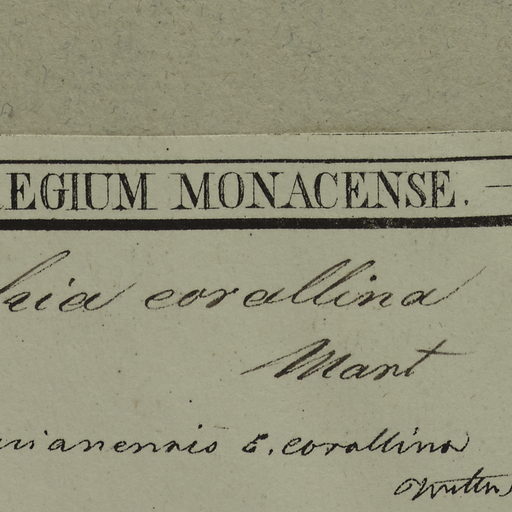 REGIUM MONACENSE. —
heia corallina
Mart
uianensis E. corallina